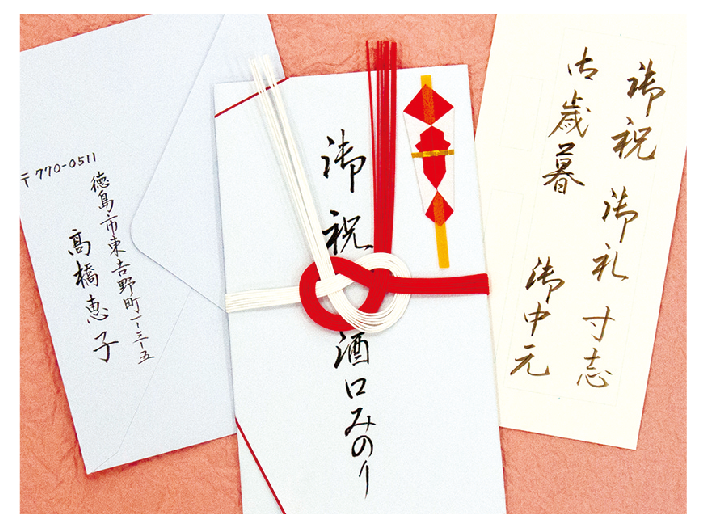 〒770-0511
徳島市東吉野町一ー三ー五
高橋恵子
御祝
酒口みのり
御祝 御礼 寸志
御歳暮 御中元